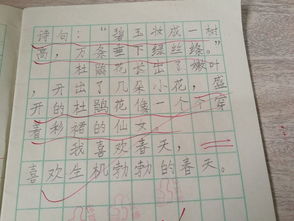 诗句："碧玉妆成一树
高，万条垂下绿丝绦。"
杜鹃花长出了嫩叶
，开出了几朵小花，盛
开的杜鹃花像一个个穿
着彩裙的仙女。
我喜欢春天，
喜欢生机勃勃的春天。